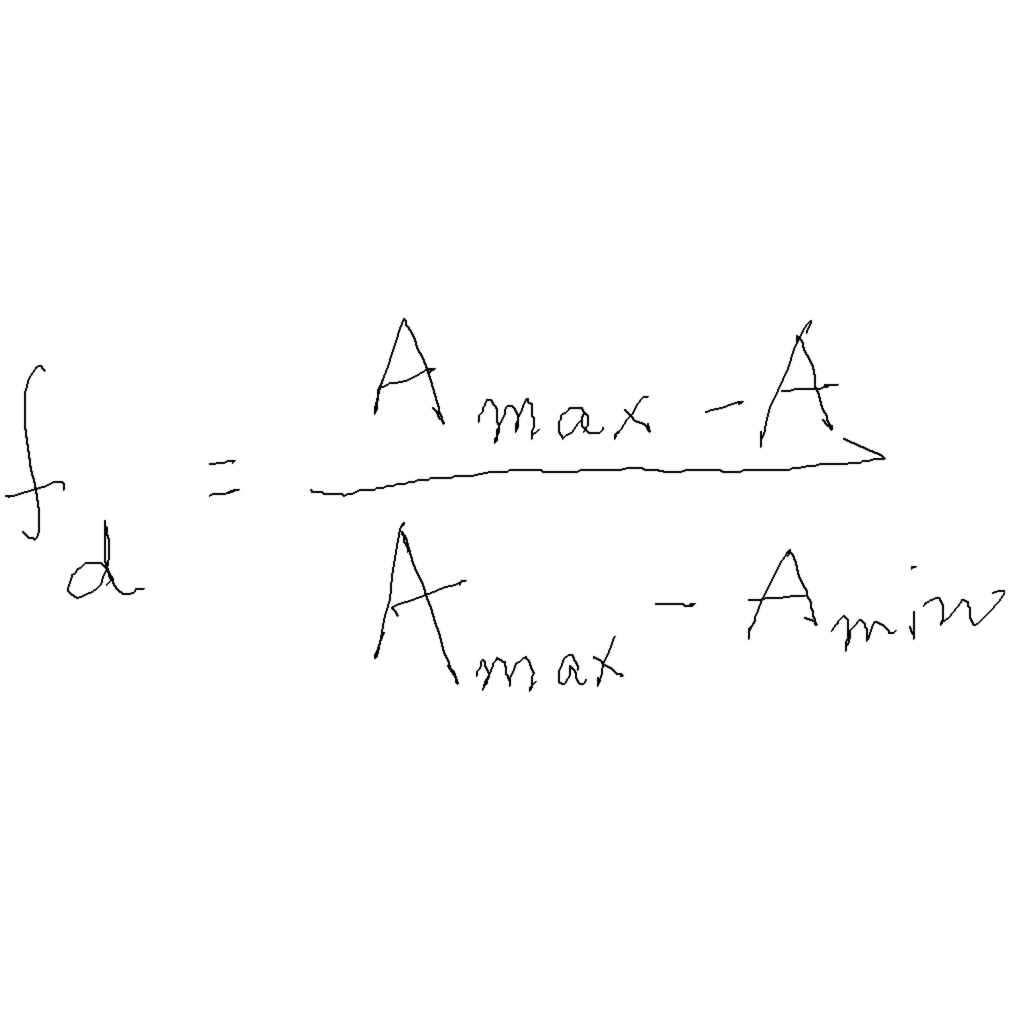 f_d = \frac{A_{max} - A}{A_{max} - A_{min}}